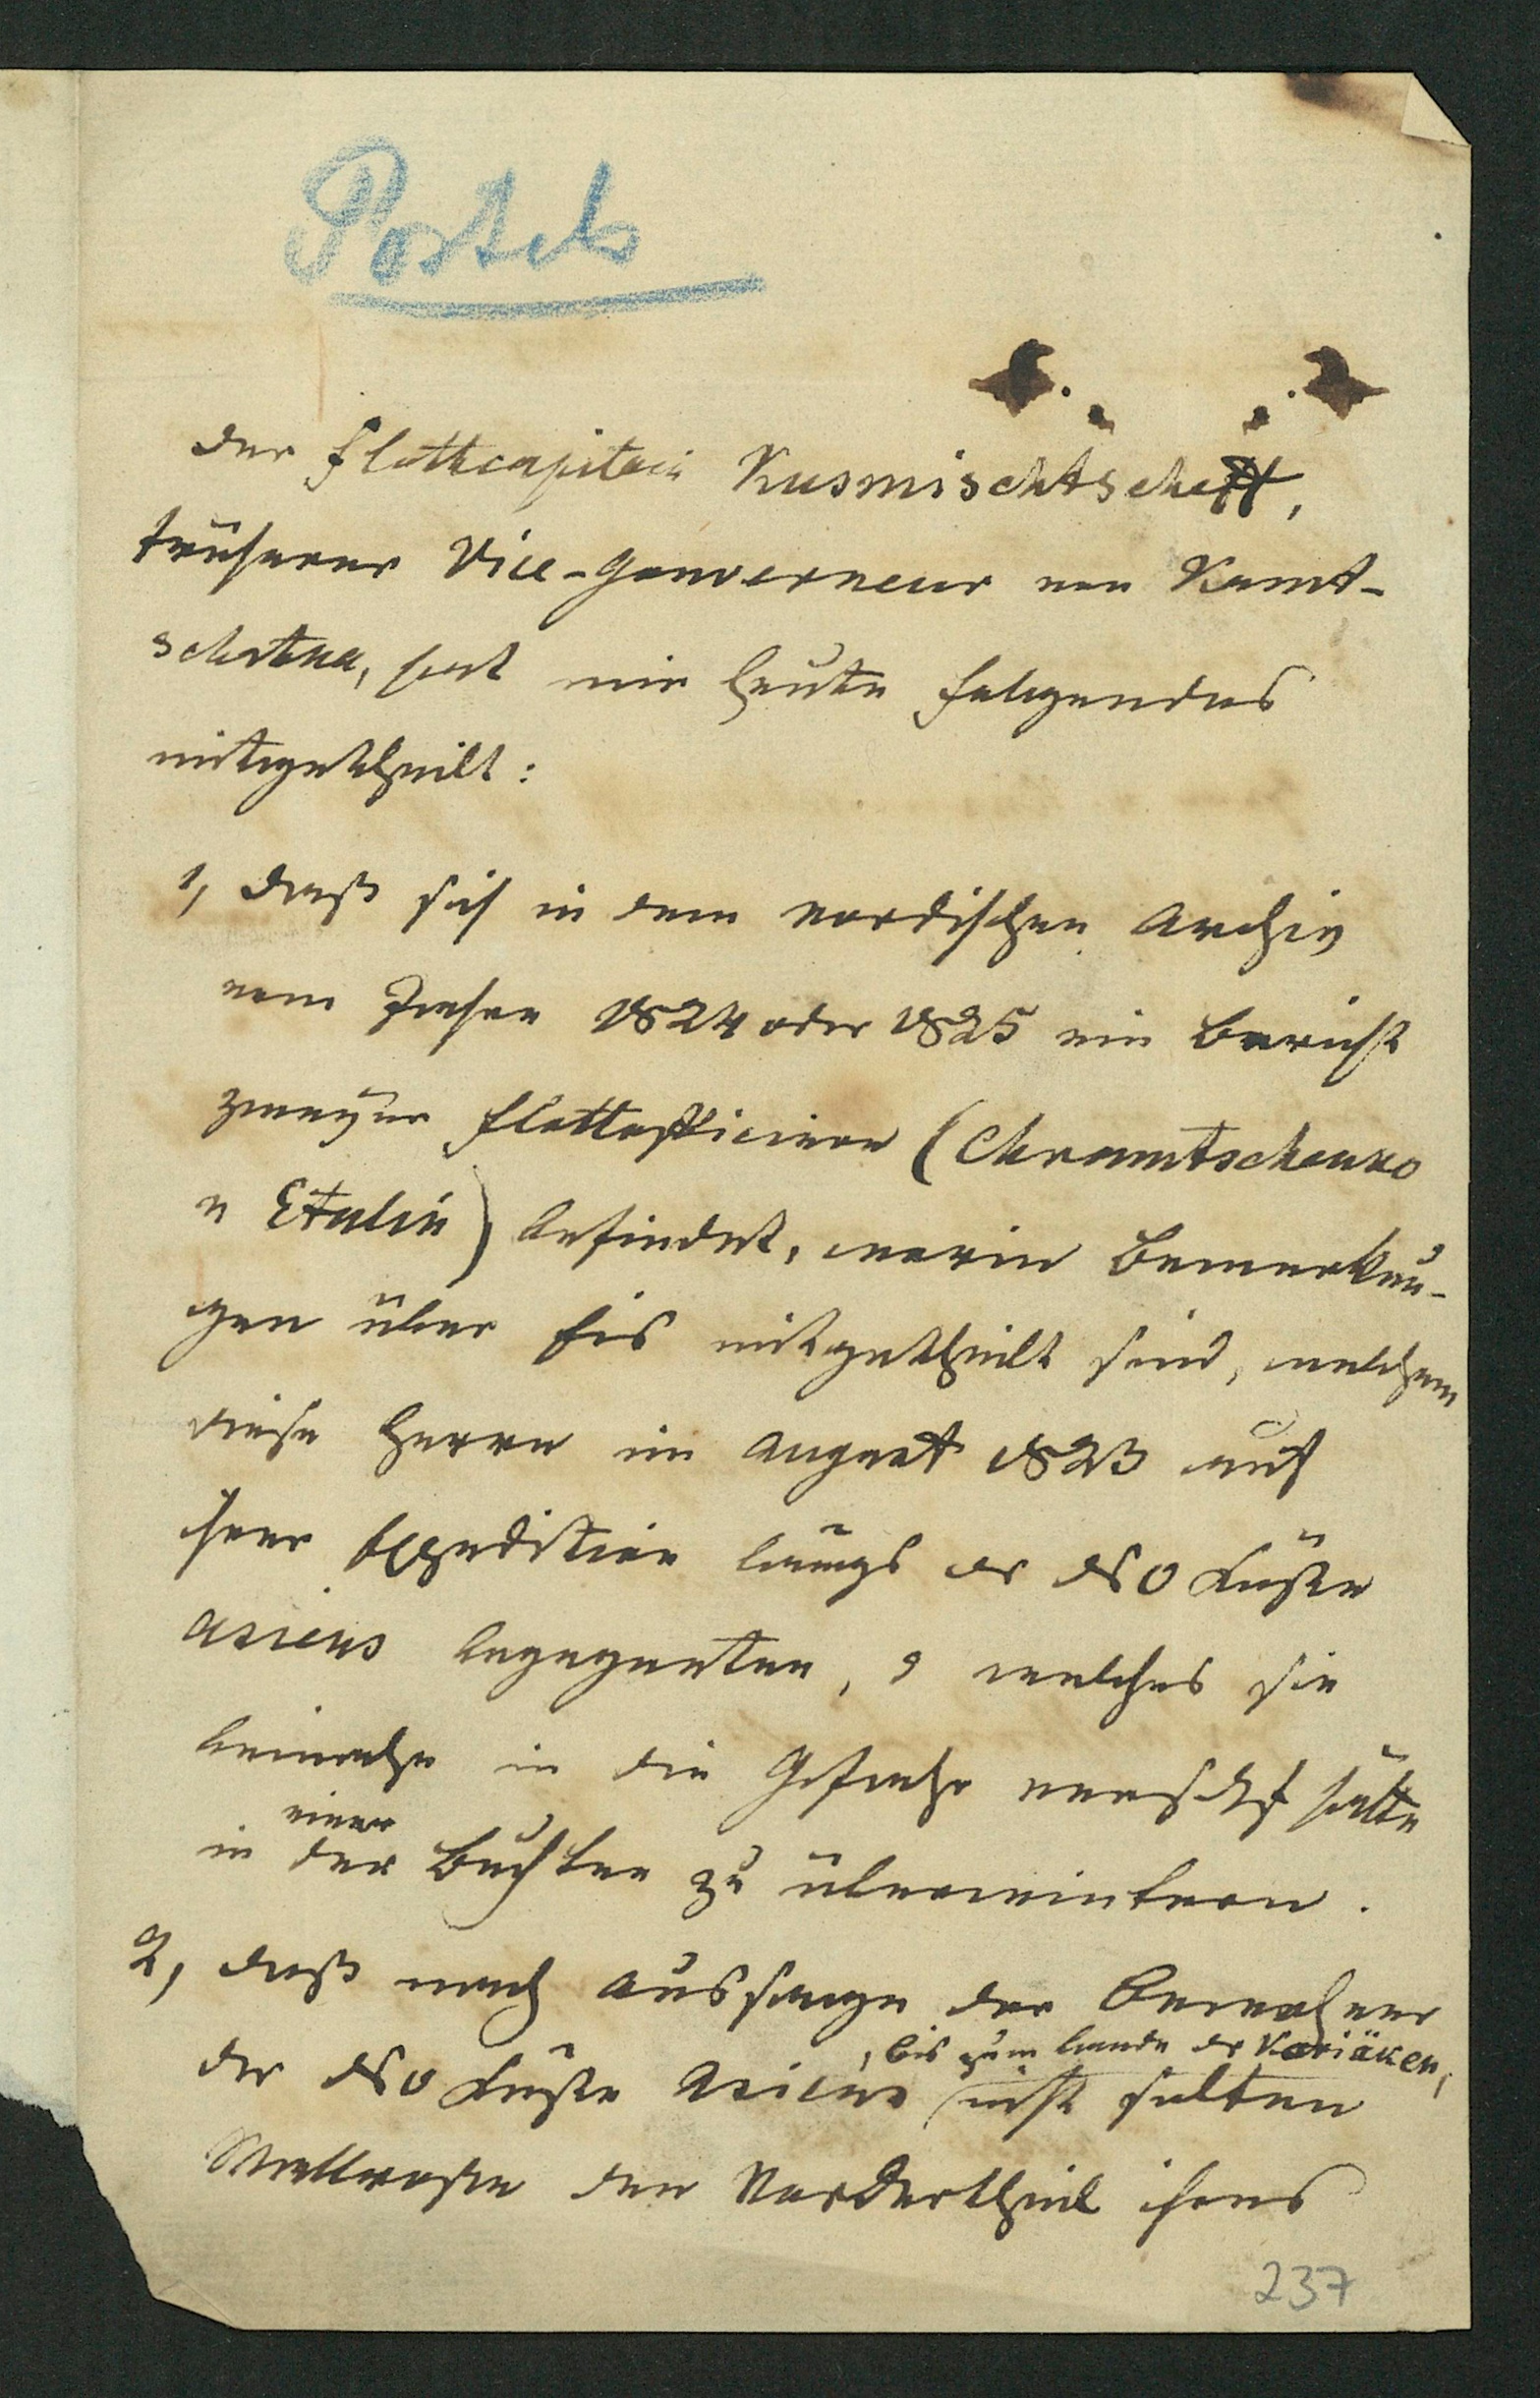 Postels
der Flottcapitain Kusmischtscheff,
früherer Vice-Gouverneur von Kamt-
schatka, hat mir heute folgendes
mitgetheilt:
1, daß sich in dem nordischen Archiv
vom Jahre 1824 oder 1825 ein Bericht
zweyer Flottofficiere (Chramtschenko
u Etolin) befindet, worin Bemerkun-
gen über Eis mitgetheilt sind, welchem
diese Herrn im August 1823 auf
ihrer Expedition längs der NO Küste
Asiens begegneten, u welches sie
beinahe in die Gefahr versetzt hätte
in einer der Buchten zu überwintern.
2, daß nach Aussage der Bewohner
der NO Küste Asiens, bis zum Lande der Koriäken,
nicht selten
Wallrosse den Vordertheil ihres
237